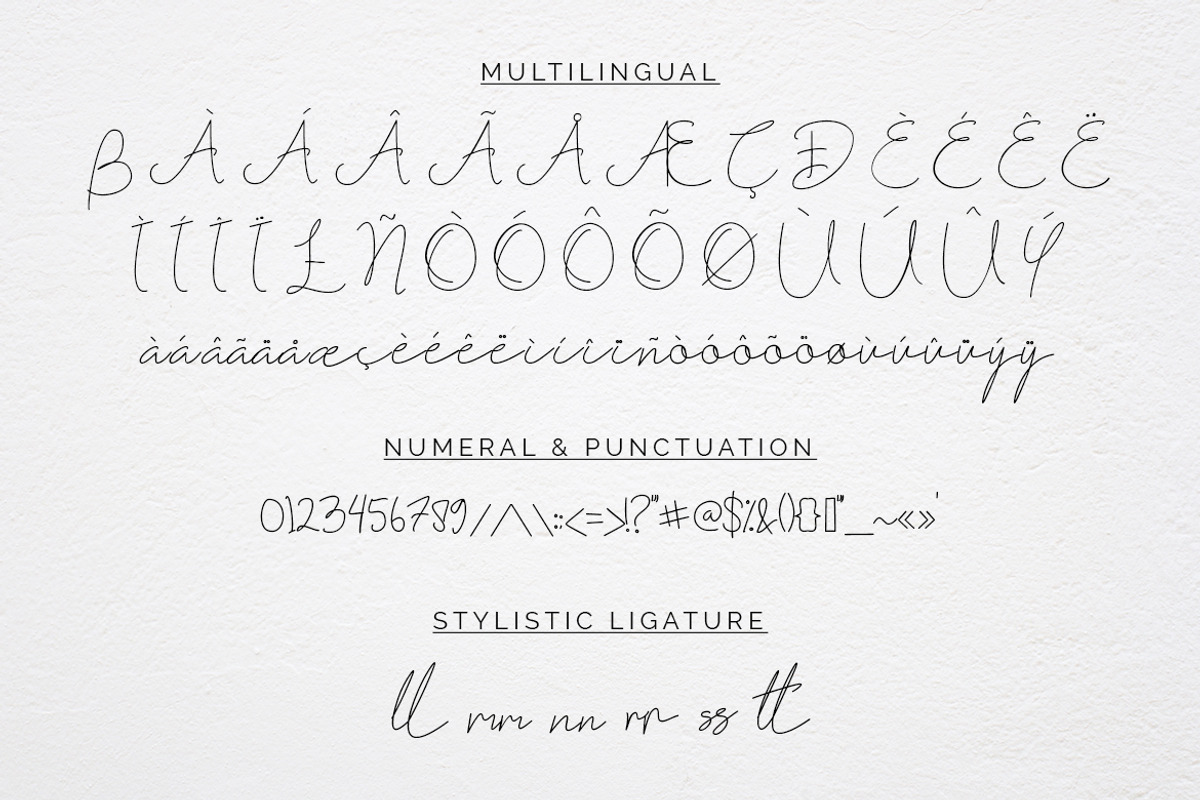 MULTILINGUAL
β À Á Â Ã Å Æ Ç Đ È É Ê Ë
Ì Í Î Ï Ł Ñ Ò Ó Ô Õ Ø Ù Ú Û Ý
àáâãäåæçèéêëìíîïñòóôõöøùúûüýÿ
NUMERAL & PUNCTUATION
0123456789/^\:;<=>!?"#@$%&(){}[]"_~«»'
STYLISTIC LIGATURE
ll mm nn rr ss tt